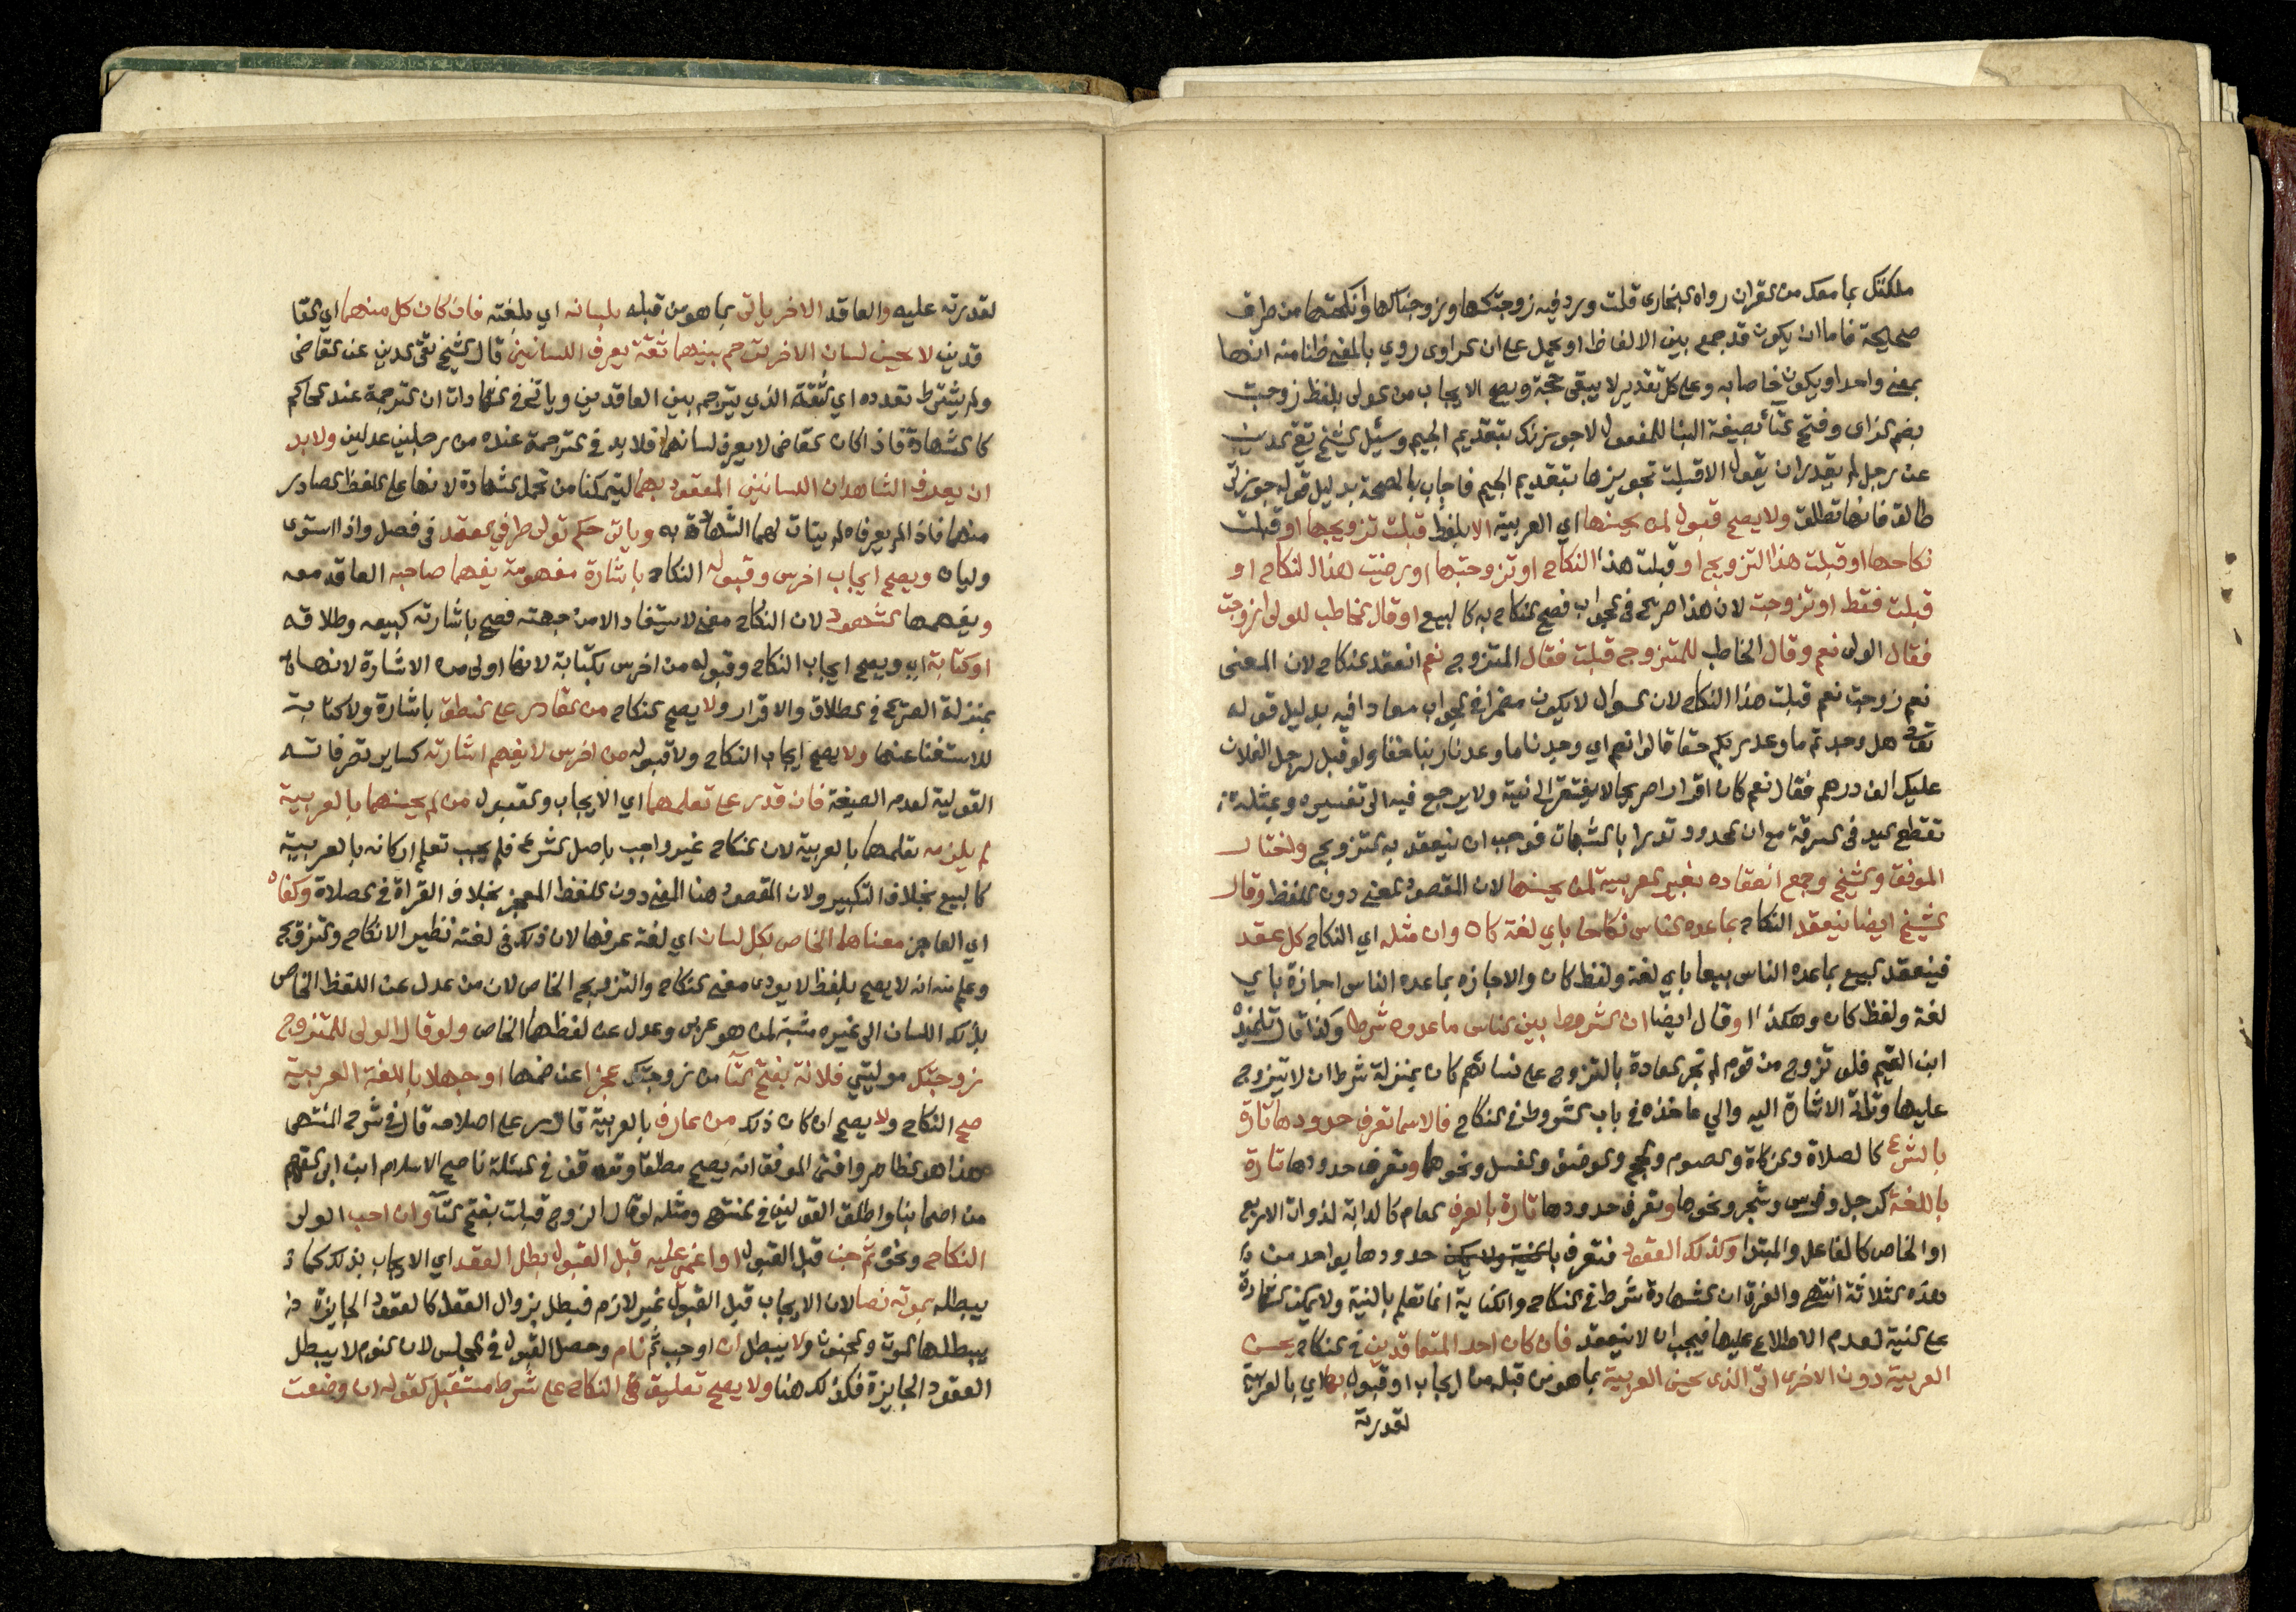 ملكتكها بما معك من القران رواه البخاري قلت ورد فيه زوجتكها وزوجناكها وأنكحتها من طرق
صحيحة فاما ان يكون قد جمع بين الالفاظ او يحمل على ان الراوي روي بالمعنى ظنا منه انها
بمعنى واحد او يكون خاصا به وعلى كل تقدير لا يبقى حجة ويصح الايجاب من المولى بلفظ زوجت
بضم الزاي وفتح التا بصيغة البنا للمفعول لا جوزتك بتقديم الجيم وسئل الشيخ تقي الدين
عن رجل لم يقدر ان يقول الا قبلت تجويزها بتقديم الجيم فاجاب بالصحة بدليل قوله جوزتي
طالق فانها تطلق ولا يصح قبول لمن يحسنها اي العربية الا بلفظ قبلت تزويجها او قبلت
نكاحها او قبلت هذا التزويج او قبلت هذا النكاح او تزوجتها او رضيت هذا النكاح او
قبلت فقط او تزوجت لان هذا صريح في الجواب فصح النكاح به كالبيع او قال الخاطب للولي ازوجت
فقال الولي نعم وقال الخاطب للمتزوج قبلت فقال المتزوج نعم انعقد النكاح لان المعنى
نعم زوجت نعم قبلت هذا النكاح لان السوال لا يكون مضمرا في الجواب معادا فيه بدليل قوله
تعالى هل وجدتم ما وعد ربكم حقا قالوا نعم اي وجدنا ما وعدنا ربنا حقا ولو قيل لرجل الفلان
عليك الف درهم فقال نعم كان اقرارا صريحا لا يفتقر الى نية ولا يرجع فيه الى تفسيره وبمثله
تقطع اليد في السرقة مع ان الحدود تدرا بالشبهات فوجب ان ينعقد به التزويج واختار
الموفق والشيخ وجمع انعقاده بغير العربية لمن يحسنها لان المقصود المعنى دون اللفظ وقال
الشيخ ايضا ينعقد النكاح بما عده الناس نكاحا باي لغة كان وان مثله اي النكاح كل عقد
فينعقد البيع بما عده الناس بيعا باي لغة ولفظ كان والاجازه بما عده الناس اجازة باي
لغة ولفظ كان وهكذا وقال ايضا ان الشروط بين الناس ما عدوه شرطا وكذا قال تلميذه
ابن القيم فلو تزوج من قوم لم تجر العادة بالتزوج على نسائهم كان بمنزلة شرط ان لا يتزوج
عليها وتاتي الاشارة اليه والى ماخذه في باب الشروط في النكاح فالاسما تعرف حدودها تارة
بالشرع كالصلاة والزكاة والصوم والحج والوضو والغسل ونحوها وتعرف حدودها تارة
باللغة كرجل وفرس وشجر ونحوها وتعرف حدودها تارة بالعرف العام كالدابة لذوات الاربع
او الخاص كالفاعل والمبتدا وكذلك العقود فتعرف حدودها بواحد من
هذه الثلاثة انتهى والفرق ان الشهادة شرط في النكاح والكناية انما تعلم بالنية ولا يمكن الشهادة
على النية لعدم الاطلاع عليها فيجب ان لا ينعقد فان كان احد المتعاقدين في النكاح يحسن
العربية دون الاخر اتى الذي يحسن العربية بما هو من قبله من ايجاب او قبول بها اي بالعربية
لقدرته
لقدرته عليه والعاقد الاخر ياتي بما هو من قبله بلسانه اي بلغته فان كان كل منهما اي العا
قدين لا يحسن لسان الاخر ترجم بينهما ثقة يعرف اللسانين قال الشيخ تقي الدين عن القاضي
ولم يشترط تعدده اي الثقة الذي يترجم بين العاقدين وياتي في الشهادات ان الترجمة عند الحاكم
كالشهادة فاذا كان القاضي لا يعرف لسانهما فلا بد في الترجمة عنده من رجلين عدلين ولا بد
ان يعرف الشاهدان اللسانين المعقود بهما ليتمكنا من تحمل الشهادة لانها على اللفظ الصادر
منهما فاذا لم يعرفاه لم يتات لهما الشهادة به وياتي حكم تولي طرفي العقد في فصل واذا استوى
وليان ويصح ايجاب اخرس وقبوله النكاح باشارة مفهومة يفهما صاحبه العاقد معه
ويفهمها الشهود لان النكاح معنى لا يستفاد الا من جهته فصح باشارته كبيعه وطلاقه
او كتابة اي ويصح ايجاب النكاح وقبوله من اخرس بكتابة لانها اولى من الاشارة لانها
بمنزلة الصريح في الطلاق والاقرار ولا يصح النكاح من القادر على النطق باشارة ولا كتابة
للاستغنا عنها ولا يصح ايجاب النكاح ولا قبوله من اخرس لا يفهم اشارته كساير تصرفاته
القولية لعدم الصيغة فان قدر على تعلمها اي الايجاب والقبول من لم يحسنهما بالعربية
لم يلزمه تعلمها بالعربية لان النكاح غير واجب باصل الشرع فلم يجب تعلم اركانه بالعربية
كالبيع بخلاف التكبير ولان المقصود هنا المعنى دون اللفظ المعجز بخلاف القراة في الصلاة وكفاه
اي العاجز معناهما الخاص بكل لسان اي لغة عرفها لان ذلك في لغته نظير الانكاح والتزويج
وعلم منه انه لا يصح بلفظ لا يودي معنى النكاح والتزويج الخاص لان من عدل عن اللفظ الخاص
بذلك اللسان الى غيره مشبة لمن هو عربي وعدل عن لفظهما الخاص ولو قال الولي للمتزوج
زوجتك موليتي فلانة بفتح التا من زوجتك عجزا عن ضمها او جهلا باللغة العربية
صح النكاح ولا يصح ان كان ذلك من عارف بالعربية قادر على اصلاحه قال في شرح المنتهى
هذا هو الظاهر وافتى الموفق انه يصح مطلقا وتوقف في المسئلة ناصح الاسلام ابن ابي الفهم
من اصحابنا واطلق القولين في المنتهى ومثله لو قال الزوج قبلت بفتح التا وان اجب الولي
النكاح ونحوه ثم جن قبل القبول او اغمي عليه قبل القبول بطل العقد اي الايجاب بذلك كما
يبطله بموته نصا لان الايجاب قبل القبول غير لازم فبطل بزوال العقل كالعقود الجايزة
يبطلها الموت والجنون ولا يبطل ان اوجب ثم نام وحصل القبول في المجلس لان النوم لا يبطل
العقود الجايزة فكذلك هنا ولا يصح تعليق النكاح على شرط مستقبل كقوله ان وضعت